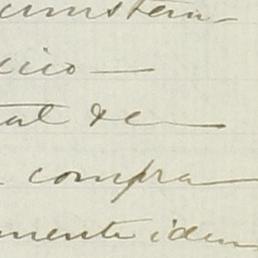 cunstan-
xico —
tal de
compra
mente iden